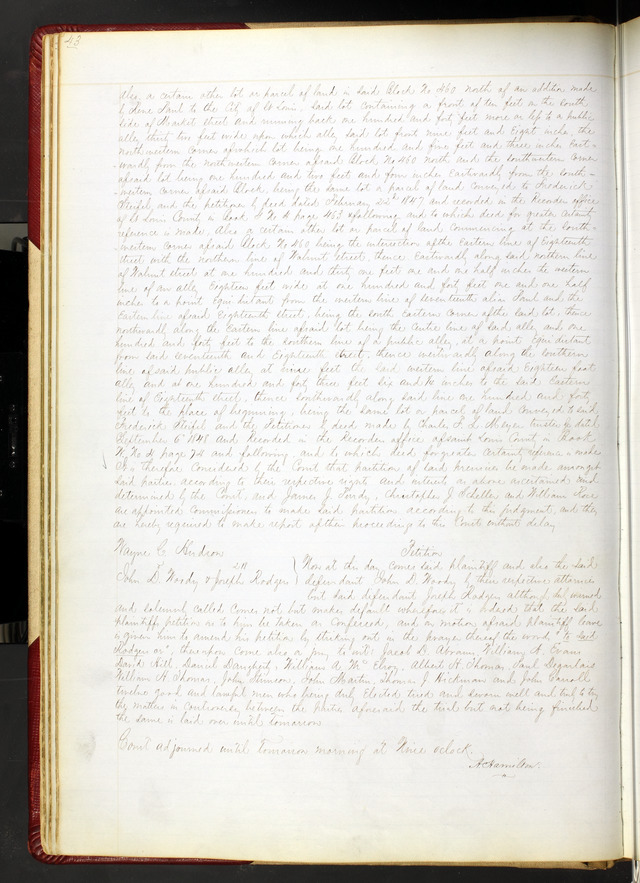 43
Also, a certain other lot or parcel of land in said Block No 460 north of an addition made
by Rene Paul to the City of St Louis. Said lot containing a front of ten feet on the South
side of Market Street and running back one hundred and forty feet more or less to a public
alley thirty two feet wide upon which alley said lot front nine feet and Eight inches, the
northwestern corner of which lot being one hundred and five feet and three inches East-
-wardly from the northwestern corner of said Block No 460 north and the southwestern corner
of said lot being one hundred and two feet and from inches Eastwardly from the south-
-western corner of said Block, being the same lot or parcel of land conveyed to Frederick
Steifel and the petitioner by deed dated February 22nd 1847 and recorded in the Recorders office
of St Louis County in Book No 4 page 463 & following and to which deed for greater certainty
reference is made. Also a certain other lot or parcel of land commencing at the South-
-western corner of said Block No 460 being the intersection of the Eastern line of Eighteenth
Street with the northern line of Walnut Street, thence Eastwardly along said northern line
of Walnut street at one hundred and thirty one feet one and one half inches the western
line of an alley Eighteen feet wide at one hundred and forty feet one and one half
inches to a point Equi distant from the western line of Seventeenth alias Paul and the
Eastern line of said Eighteenth Street, being the South Eastern corner of the land lot, thence
northwardly along the Eastern line of said lot being the Centre line of said alley and one
hundred and forty feet to the southern line of a public alley, at a point Equi distant
from said seventeenth and Eighteenth Street, thence westwardly along the southern
line of said public alley, at nine feet the said western line of said Eighteen foot
alley and at one hundred and forty three feet six and ½ inches to the said Eastern
line of Eighteenth street, thence Southwardly along said line one hundred and forty
feet to the place of beginning, being the same lot or parcel of land conveyed to said
Frederick Steifel and the Petitioner by deed made by Charles F. L. Meyer trustee by dated
September 6th 1848 and Recorded in the Recorders office of Saint Louis County in Book
No 4 page 74 and following and to which deed for greater certainty reference is made
It is therefore Considered by the Court that partition of said premises be made amongst
said parties according to their respective rights and interests as above ascertained and
determined by the Court, and James J. Purdy, Christopher J. Scheller and William Hare
are appointed Commissioners to make said partition according to this judgment, and they
are hereby required to make report of their proceedings to the Court without delay
Wayne C. Hudson
Petition
vs
John D. Woody & Joseph Rodgers
Now at this day comes said plaintiff and also the said
defendant John D. Woody by their respective attorneys
but said defendant Joseph Rodgers although duly warned
and solemnly called Comes not but makes default wherefore it is ordered that the said
plaintiffs petition as to him be taken as Confessed, and on motion of said plaintiff leave
is given him to amend his petition by striking out in the prayer thereof the words "to said
Rodgers or", thereupon come also a jury to wit: Jacob D. Abrams, William H. Evans
David Hill, Daniel Daugherty, William A. McElroy, Albert H. Thomas, Paul
William H. Thomas, John Stinson, John Martin, Thomas J. Hickman and John Carroll
twelve good and lawful men who being duly Elected tried and sworn well and truly to try
the matters in Controversy between the parties aforesaid the trial but not being finished
the same is laid over until tomorrow
Court adjourned until tomorrow morning at Nine oclock.
A. Hamilton